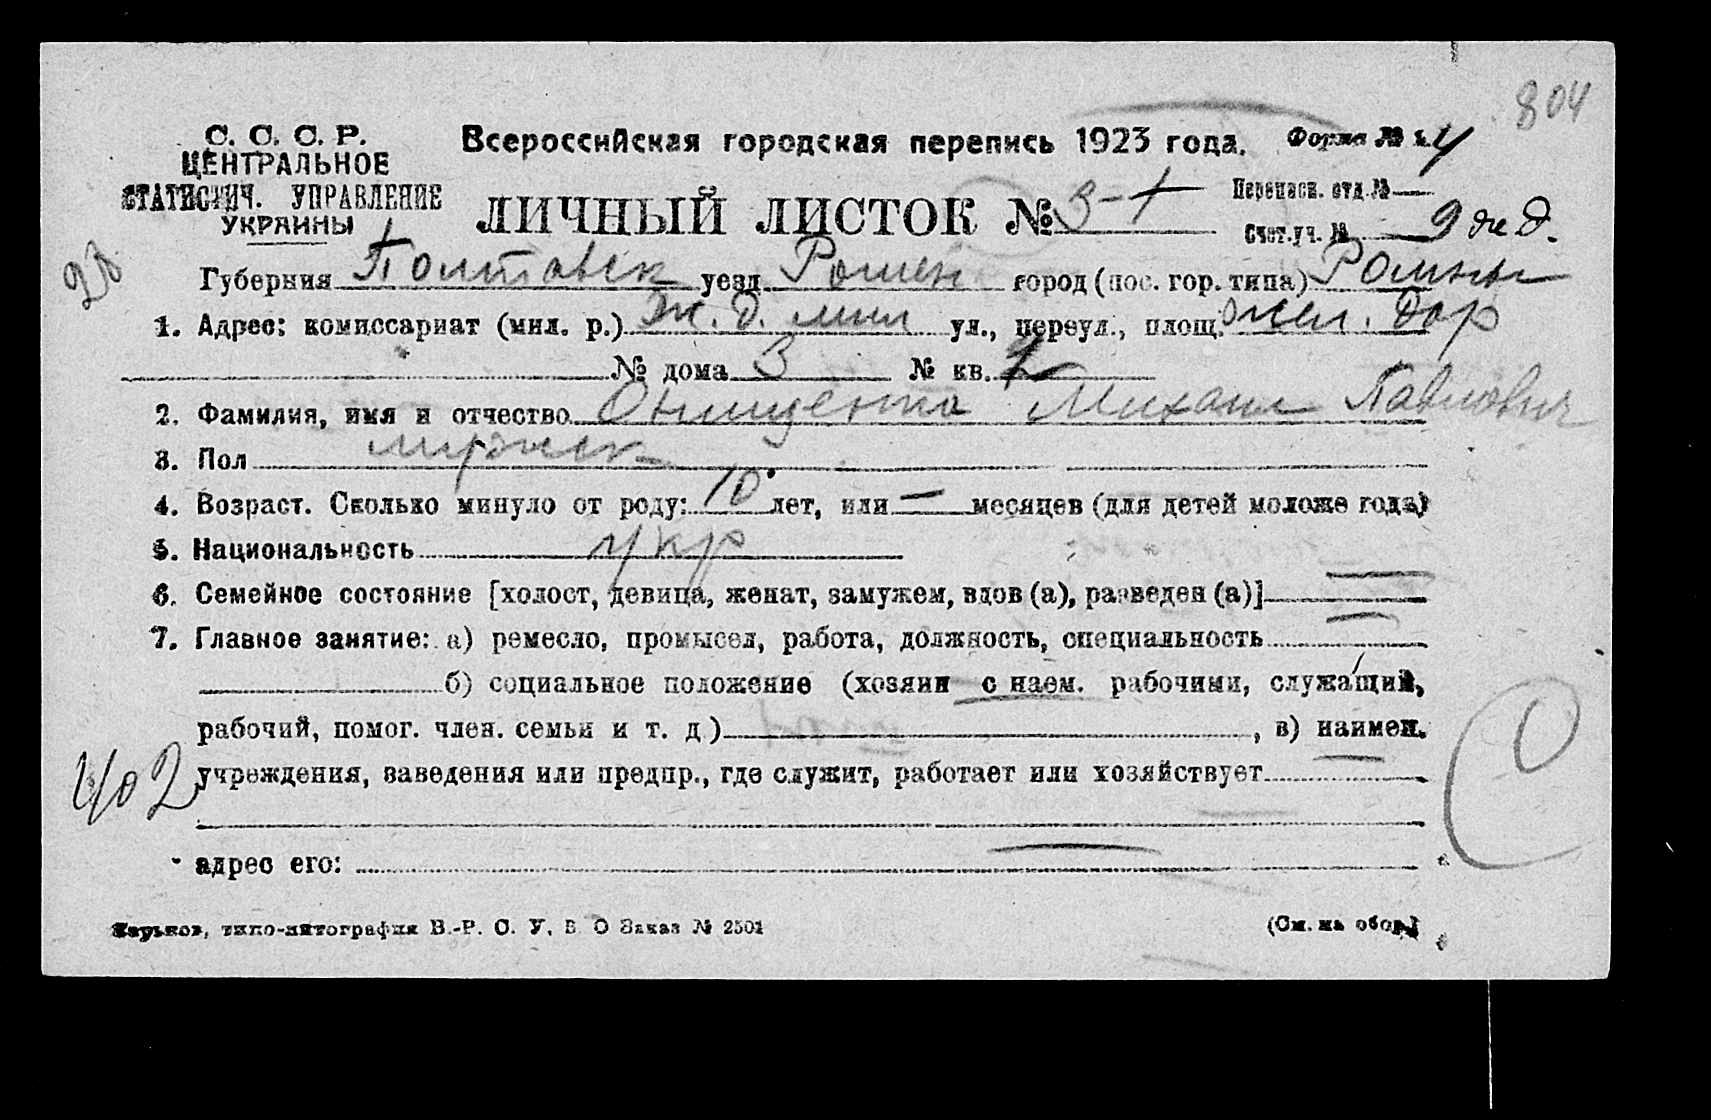 804
С. С. С. Р.
ЦЕНТРАЛЬНОЕ
СТАТИСТИЧ. УПРАВЛЕНИЕ
УКРАИНЫ
Всероссийская городская перепись 1923 года. Форма № 4
ЛИЧНЫЙ ЛИСТОК № 3-1
Переписн. отд. № —
Счет. уч. № 9 ж д.
Губерния Полтавск уезд Ромен город (пос. гор. типа) Ромны
1. Адрес: комиссариат (мил. р.) Ж. д. мил ул., переул., площ. Жел. Дор
№ дома 3 № кв.
2. Фамилия, имя и отчество Онищенко Михаил Павлович
3. Пол мужск
4. Возраст. Сколько минуло от роду: 10 лет, или — месяцев (для детей моложе года)
5. Национальность укр
6. Семейное состояние [холост, девица, женат, замужем, вдов (а), разведен (а)] —
7. Главное занятие: а) ремесло, промысел, работа, должность, специальность —
б) социальное положение (хозяин с наем. рабочими, служащий,
рабочий, помог. член. семьи и т. д.) , в) наимен.
402
учреждения, заведения или предпр., где служит, работает или хозяйствует —
адрес его: —
Харьков, типо-литография В.-Р. С. У. В О Заказ № 2501
(См. на обор.)